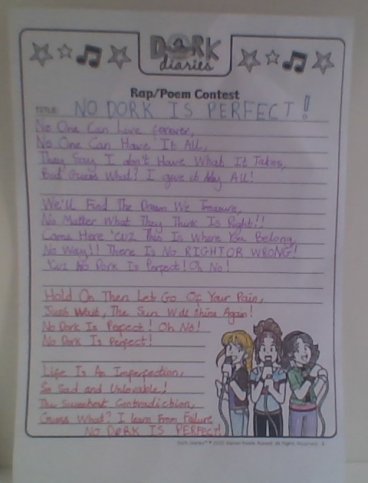 DORK
diaries
Rap/Poem Contest
TITLE: NO DORK IS PERFECT!
No One Can Love forever,
No One Can Have It All,
They Say I don't Have What It Takes,
But Guess What? I give it My All!
We'll Find The Dream We Treasure,
No Matter What They Think Is Right!!
Come Here 'cuz This Is Where You Belong,
No Way!! There Is No RIGHT OR WRONG!
'Cuz No Dork Is Perfect! Oh No!
Hold On Then Let Go Of Your Pain,
Just Wait, The Sun Will Shine Again!
No Dork Is Perfect! Oh No!
No Dork Is Perfect!
Life Is An Imperfection,
So Sad and Unlovable!
The Sweetest Contradiction,
Guess What? I learn From Failure
NO DORK IS PERFECT!